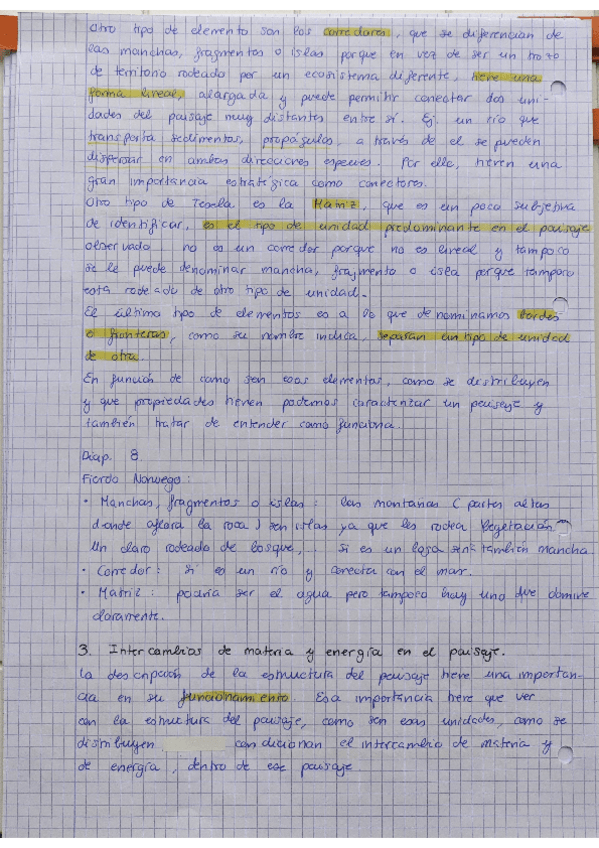 Otro tipo de elemento son los corredores, que se diferencian de
las manchas, fragmentos o islas porque en vez de ser un trozo
de territorio rodeado por un ecosistema diferente, tiene una
forma lineal, alargada y puede permitir conectar dos uni-
dades del paisaje muy distantes entre sí. Ej. un río que
transporta sedimentos, propágulos, a través de el se pueden
dispersar en ambas direcciones especies. Por ello, tienen una
gran importancia estratégica como conectores.
Otro tipo de Tesela es la Matriz, que es un poco subjetiva
de identificar, es el tipo de unidad predominante en el paisaje
observado no es un corredor porque no es lineal y tampoco
se le puede denominar mancha, fragmento o isla porque tampoco
está rodeado de otro tipo de unidad.
El último tipo de elementos es a lo que denominamos bordes
o fronteras, como su nombre indica, separan un tipo de unidad
de otra.
En función de como son esos elementos, como se distribuyen
y que propiedades tienen podemos caracterizar un paisaje y
también tratar de entender como funciona.
Diap. 8.
Fiordo Noruego:
· Manchas, fragmentos o islas: las montañas (partes altas
donde aflora la roca) son islas ya que les rodea vegetación
Un claro rodeado de bosque,... si es un lago sería también mancha
· Corredor: si es un río y conecta con el mar.
· Matriz: podría ser el agua pero tampoco hay uno que domine
claramente.
3. Intercambios de materia y energía en el paisaje.
La descripción de la estructura del paisaje tiene una importan-
cia en su funcionamiento. Esa importancia tiene que ver
con la estructura del paisaje, como son esas unidades, como se
distribuyen condicionan el intercambio de materia y
de energía, dentro de ese paisaje